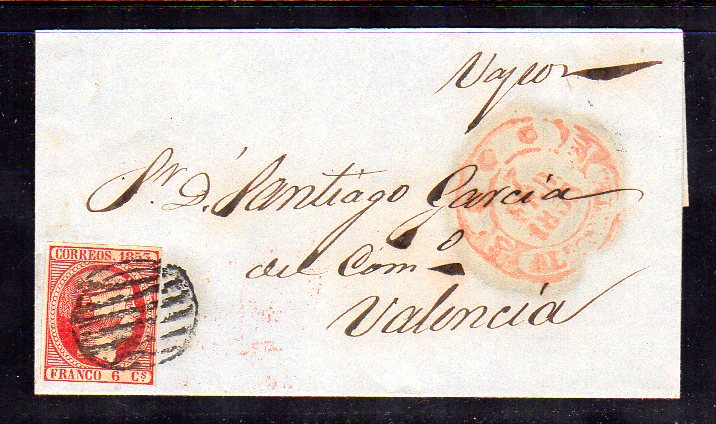 Vapor
Sr. D. Santiago García
del Com.º
Valencia
CORREOS. 1853
FRANCO 6 Cs